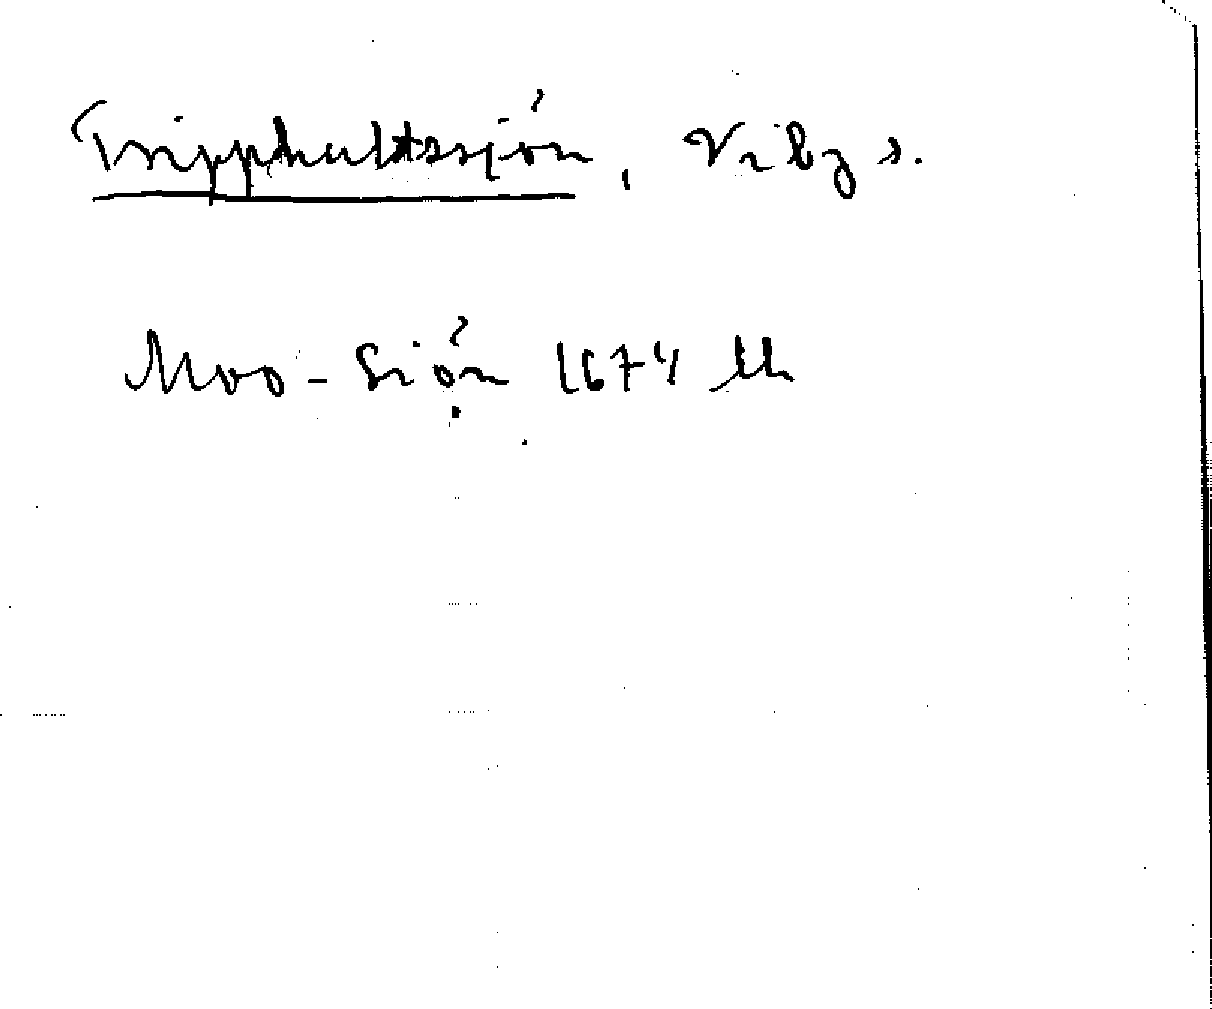 Tripphultssjön, Viby s.
Moo-Siön 1674 lh